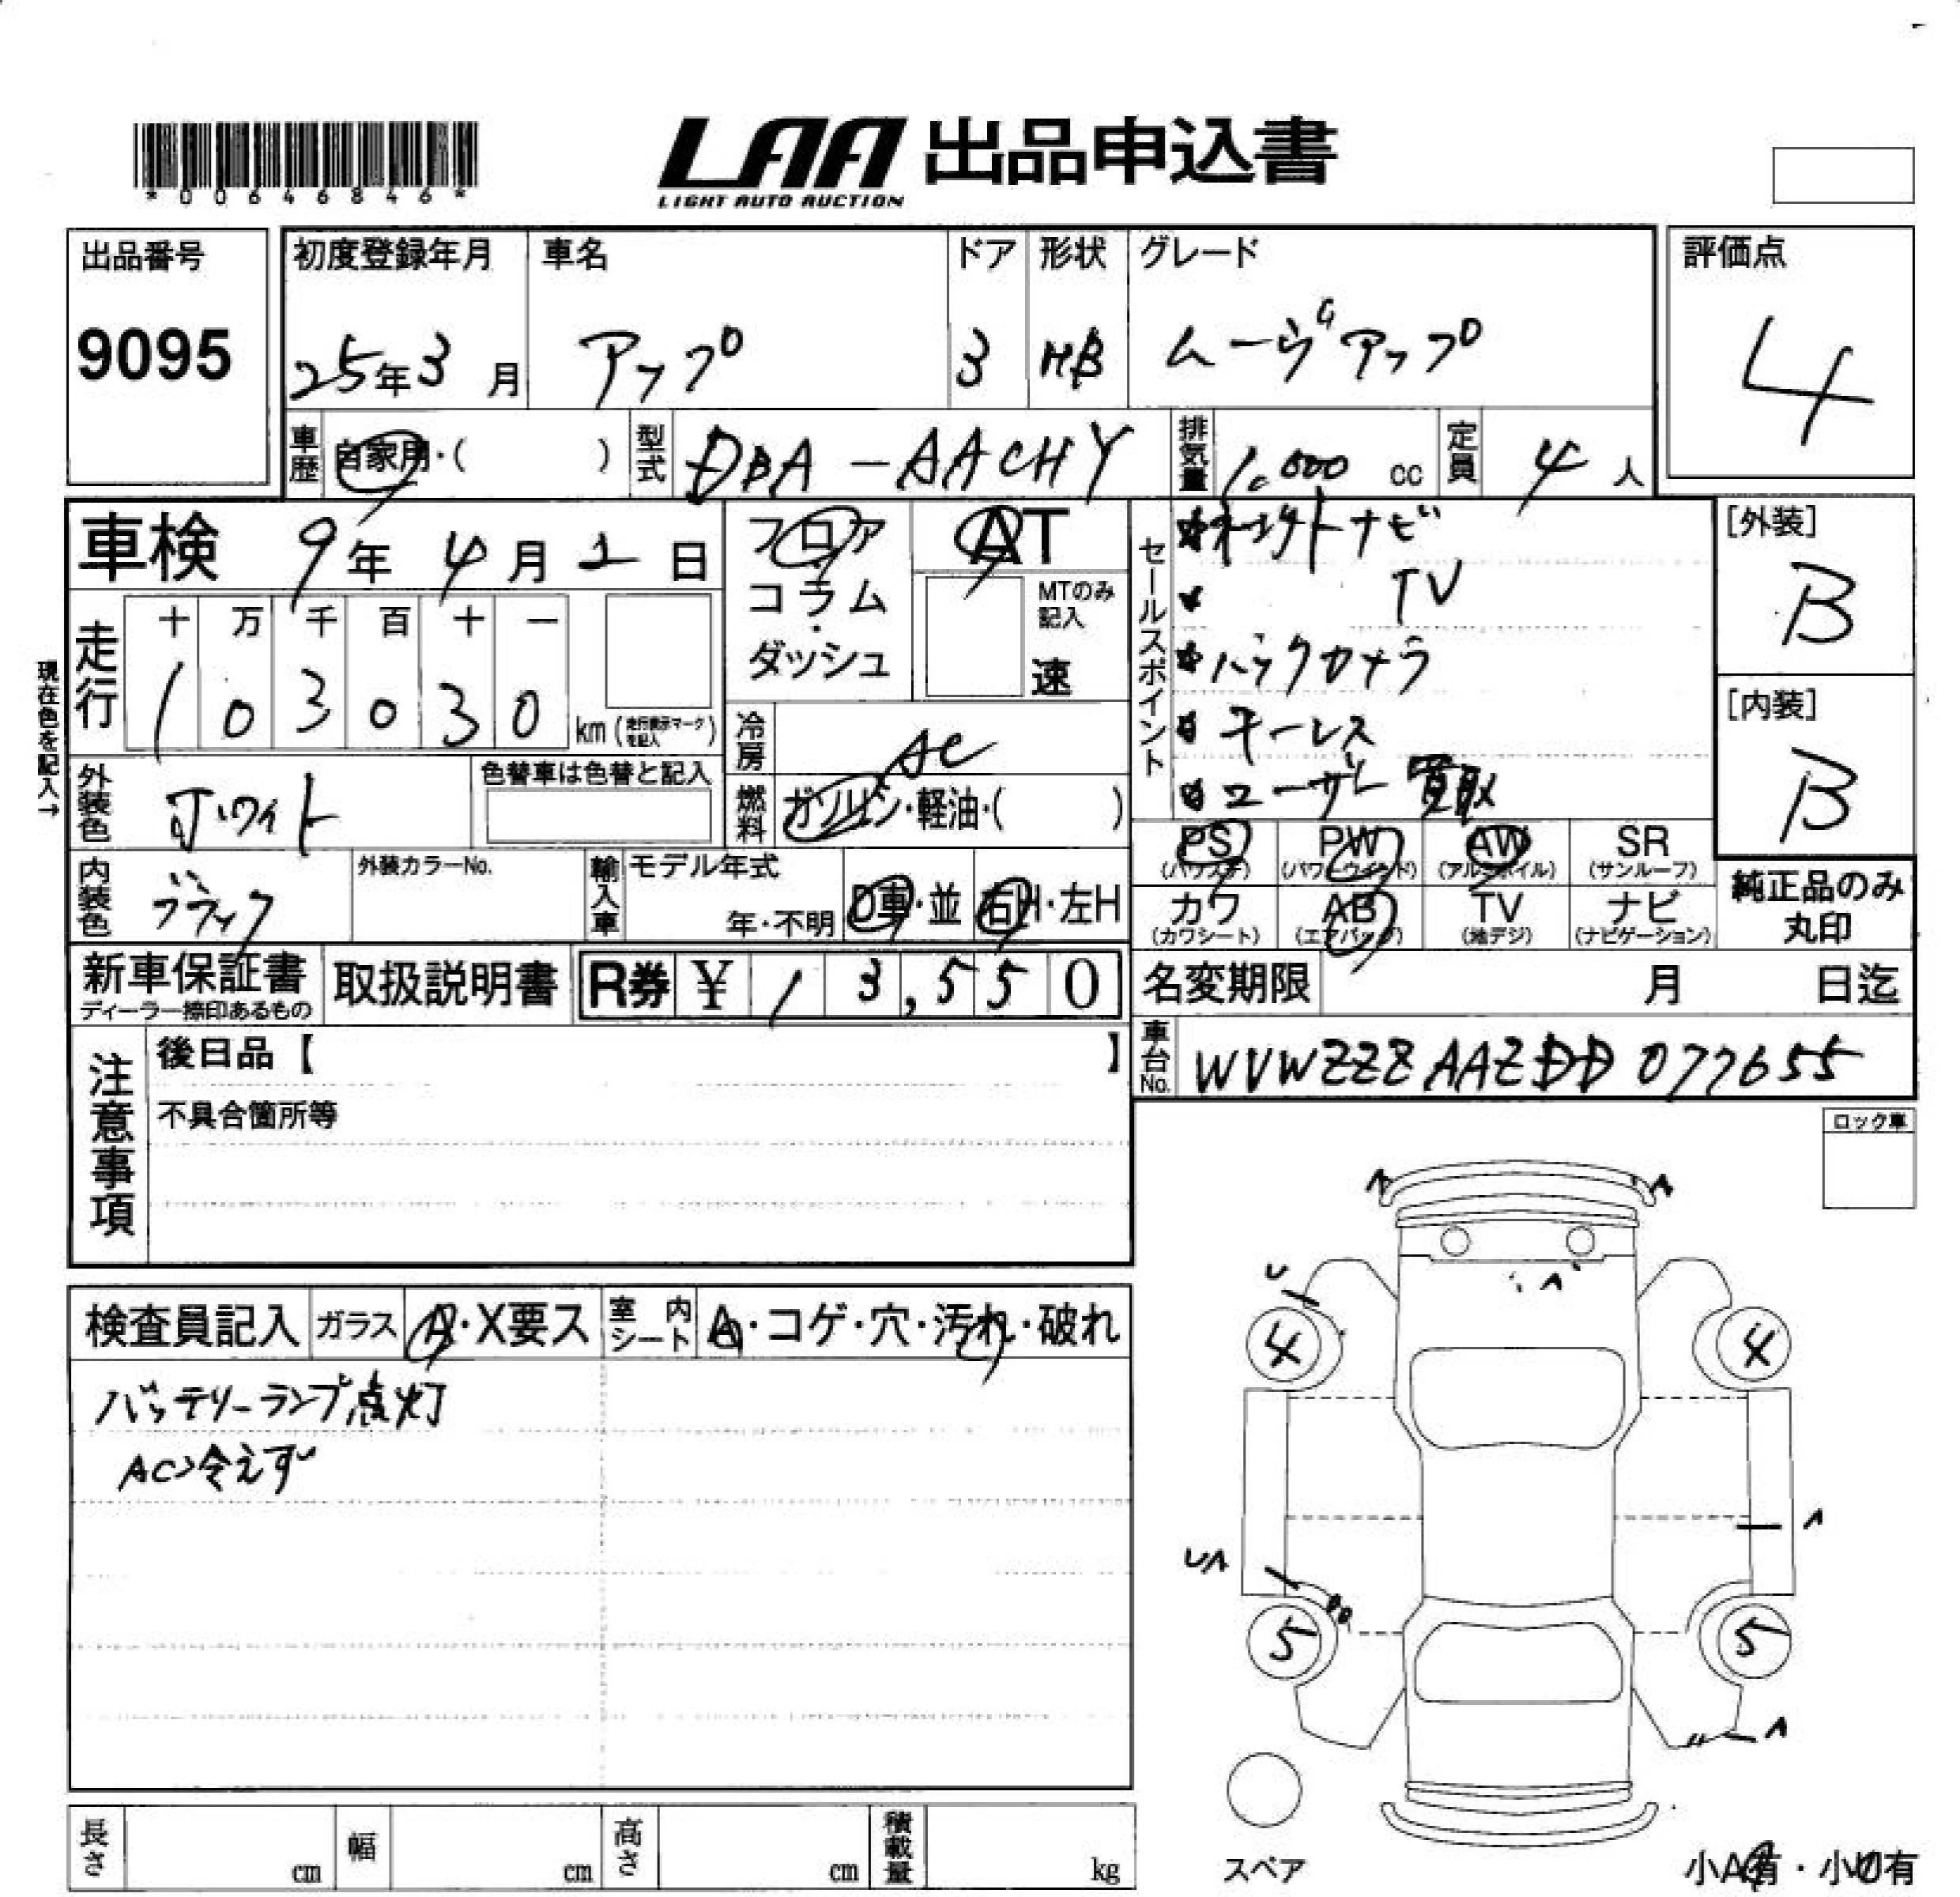 *00646846*
LAA 出品申込書
LIGHT AUTO AUCTION
出品番号 9095
初度登録年月 25年3月
車名 アップ
ドア 3
形状 HB
グレード ムーヴアップ
評価点 4
車歴 自家用・( )
型式 DBA-AACHY
排気量 1.000 cc
定員 4人
車検 9年4月2日
フロア
コラム
・
ダッシュ
AT
MTのみ
記入
速
セールスポイント
ナビ
TV
バックカメラ
キーレス
ユーザー買取
[外装] B
[内装] B
現在色を記入→
走行
十 万 千 百 十 一
1 0 3 0 3 0 km (走行表示マークを記入)
冷房 AC
外装色 ホワイト
色替車は色替と記入
燃料 ガソリン・軽油・( )
内装色 ブラック
外装カラーNo.
輸入車
モデル年式
年・不明
D車・並
右H・左H
PS (パワステ)
PW (パワーウインド)
AW (アルミホイル)
SR (サンルーフ)
カワ (カワシート)
AB (エアバッグ)
TV (地デジ)
ナビ (ナビゲーション)
純正品のみ
丸印
新車保証書
ディーラー捺印あるもの
取扱説明書
R券 ¥ 13,550
名変期限 月 日迄
車台No. WVWZZZAAZDD077655
注意事項
後日品【 】
不具合箇所等
ロック車
検査員記入
ガラス A・X要ス
室内シート A・コゲ・穴・汚れ・破れ
バッテリーランプ点灯
AC冷えず
A A
U
A
4 4
A
UA
5 5
A
スペア
小A有・小U有
長さ cm
幅 cm
高さ cm
積載量 kg